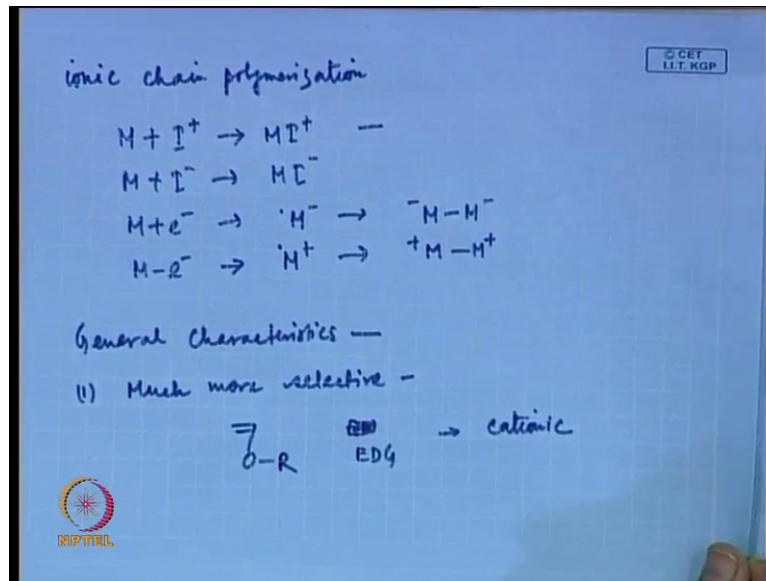 © CET
I.I.T. KGP
ionic chain polymerization
M + I⁺ → MI⁺ —
M + I⁻ → MI⁻
M + e⁻ → ·M⁻ → ⁻M – M⁻
M – e⁻ → ·M⁺ → ⁺M – M⁺
General Characteristics —
(1) Much more selective –
O–R EDG → cationic
NPTEL